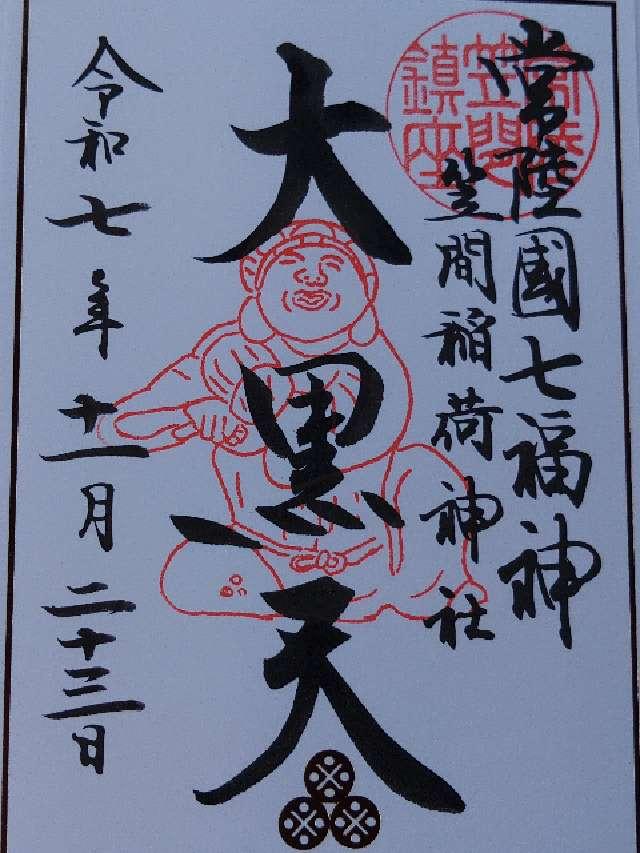 常陸國七福神
笠間稲荷神社
常陸笠間鎮座
大黒天
令和七年十一月二十三日